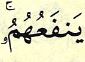 يَنفَعُهُمُۥۚ